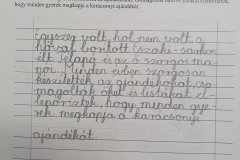 hogy minden gyerek megkapja a karácsonyi ajándékát.
Egyszer volt, hol nem volt, a
hóval borított Északi-sarkon
élt Télapó és az ő szorgos ma-
nói. Minden évben szorgosan
készítették az ajándékokat, cso-
magolták őket és listákat el-
lenőrizték, hogy minden gye-
rek megkapja a karácsonyi
ajándékát.